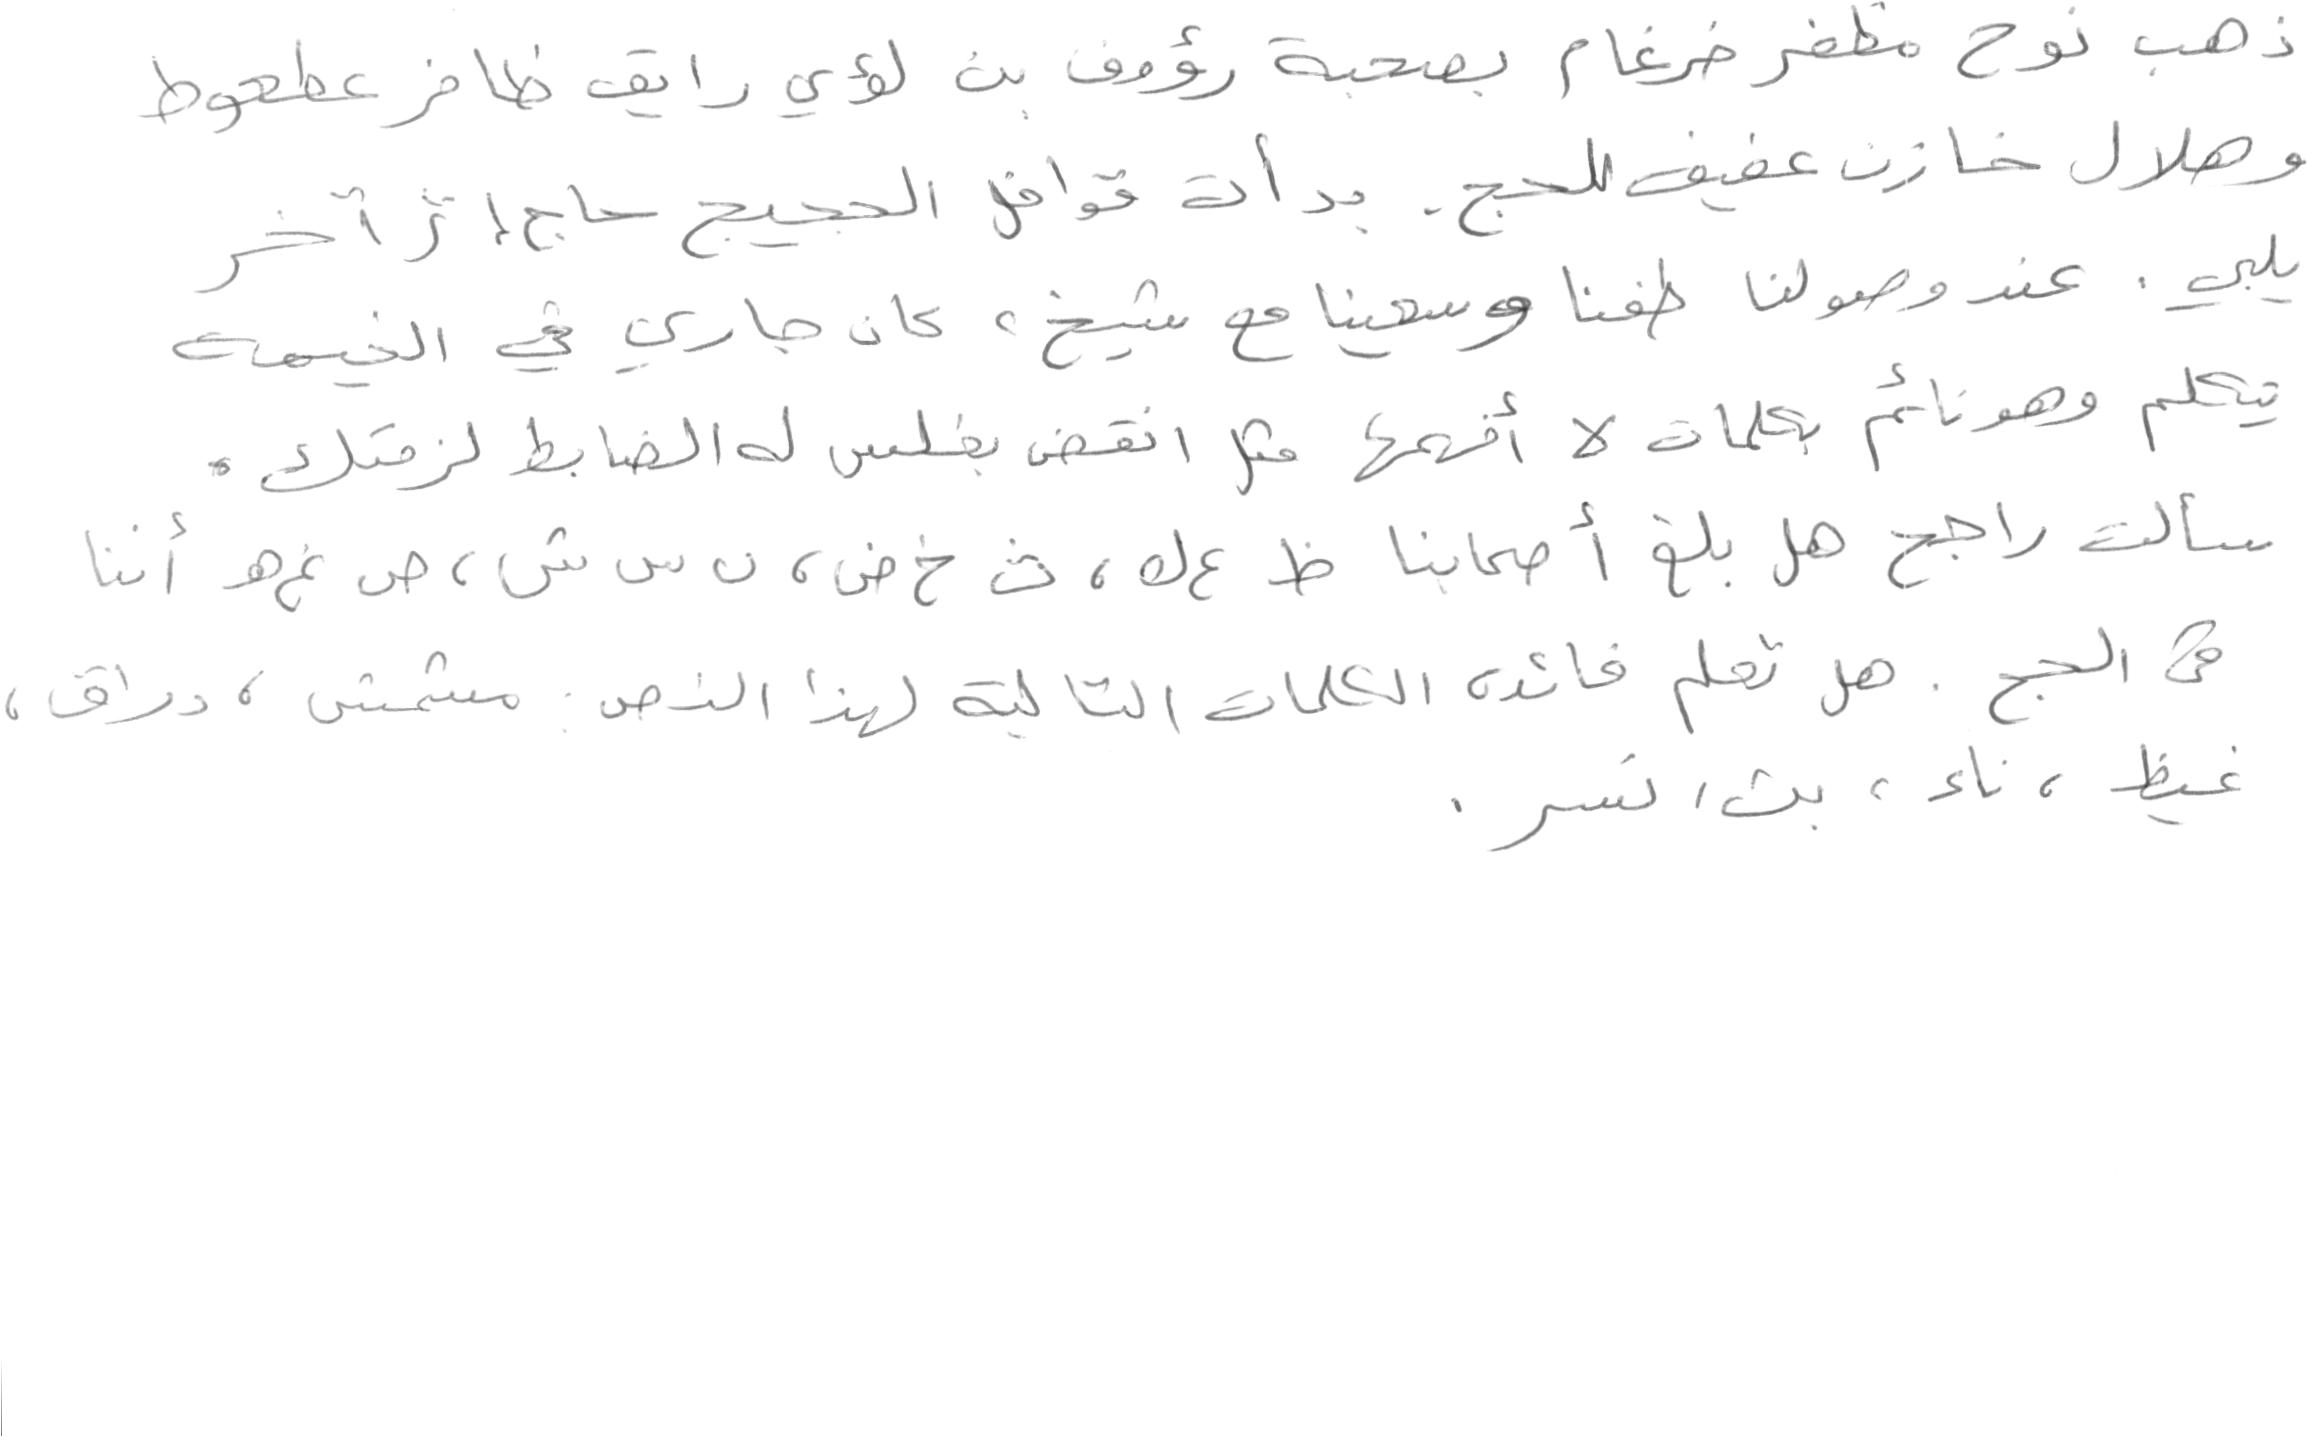 ذهب نوح مظفر ضرغام بصحبة رؤوف بن لؤي رايق ظافر عطعوط
وهلال خازن عفيف للحج. بدأت قوافل الحجيج حاج إثر آخر
يلبي. عند وصولنا طفنا وسعينا مع شيخ، كان جاري في الخيمة
يتكلم وهو نائم بكلمات لا أفهمها مثل انقض بغلس له الضابط لزمتك.
سألت راجح هل بلغ أصحابنا ظ ع ك، ث خ ض، ن س ش، ص غ ه أننا
في الحج. هل تعلم فائدة الكلمات التالية لهذا النص: مشمش، دراق،
غيظ، ناء، بث، نسر.